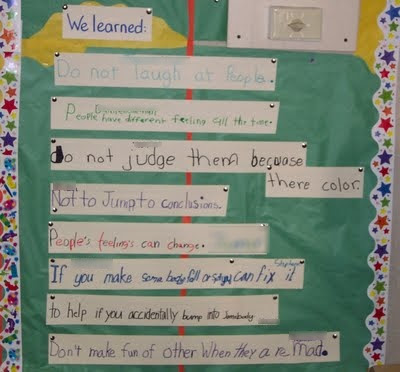 We learned:
Do not laugh at People.
People have different feeling all the time.
do not judge them because
there color.
Not to Jump to conclusions.
People's feeling's can change.
If you make some body fall or you can fix it
to help if you accidentally bump into somebody
Don't make fun of other When they are mad.